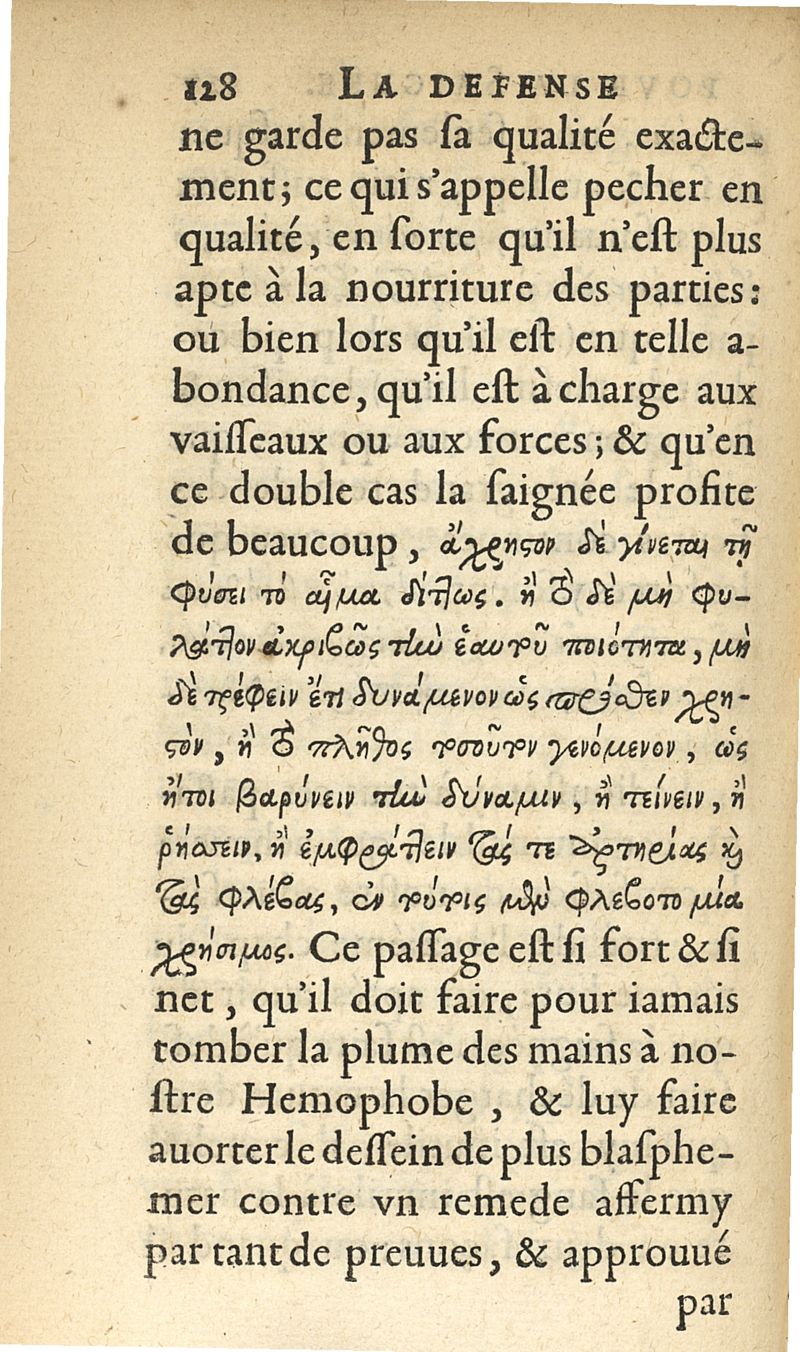 128 LA DEFENSE
ne garde pas ſa qualité exacte-
ment; ce qui s'appelle pecher en
qualité, en ſorte qu'il n'eſt plus
apte à la nourriture des parties:
ou bien lors qu'il eſt en telle a-
bondance, qu'il eſt à charge aux
vaiſſeaux ou aux forces; & qu'en
ce double cas la ſaignée profite
de beaucoup, ἄχρηστον δὲ γίνεται τῇ
φύσει τὸ αἷμα διττῶς. ἢ τὸ δὲ μὴ φυ-
λάττον ἀκριβῶς τὴν ἑαυτοῦ ποιότητα, μὴ
δὲ τρέφειν ἔτι δυνάμενον ὡς πρόσθεν χρη-
στὸν, ἢ τὸ πλῆθος τοσοῦτον γενόμενον, ὡς
ἤτοι βαρύνειν τὴν δύναμιν, ἢ τείνειν, ἢ
ῥήσσειν, ἢ ἐμφράττειν τάς τε ἀρτηρίας καὶ
τὰς φλέβας, ἐν τούτοις μὲν φλεβοτομία
χρήσιμος. Ce paſſage eſt ſi fort & ſi
net, qu'il doit faire pour iamais
tomber la plume des mains à no-
ſtre Hemophobe, & luy faire
auorter le deſſein de plus blaſphe-
mer contre vn remede affermy
par tant de preuues, & approuué
par